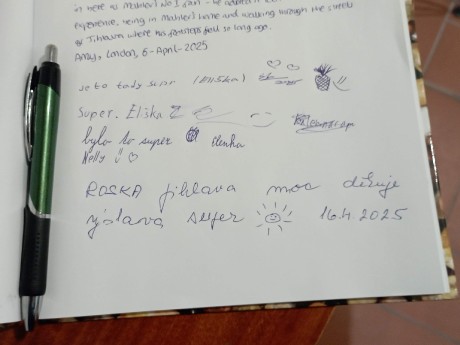 experience, being in Mahler's home and walking through the streets
of Jihlava where his footsteps fell so long ago.
Andy, London, 6-April-2025
je to tady super (Eliška)
Super. Eliška
bylo to super Elenka
Nelly
ROSKA jihlava moc děkuje
výstava super 16.4.2025